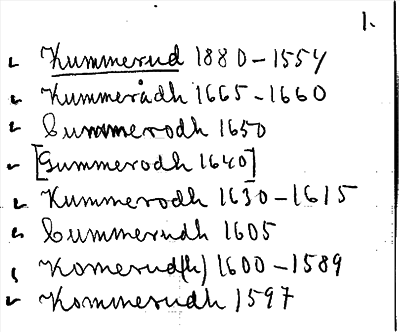 1.
Kummerud 1880-1554
Kummerådh 1665-1660
Cummerodh 1650
[Gummerodh 1640]
Kummerodh 1630-1615
Cummerudh 1605
Komerud(h) 1600-1589
Kommerudh 1597